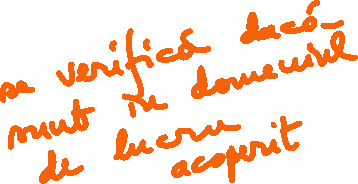 se verifică dacă-
sunt în domeniul
de lucru
acoperit